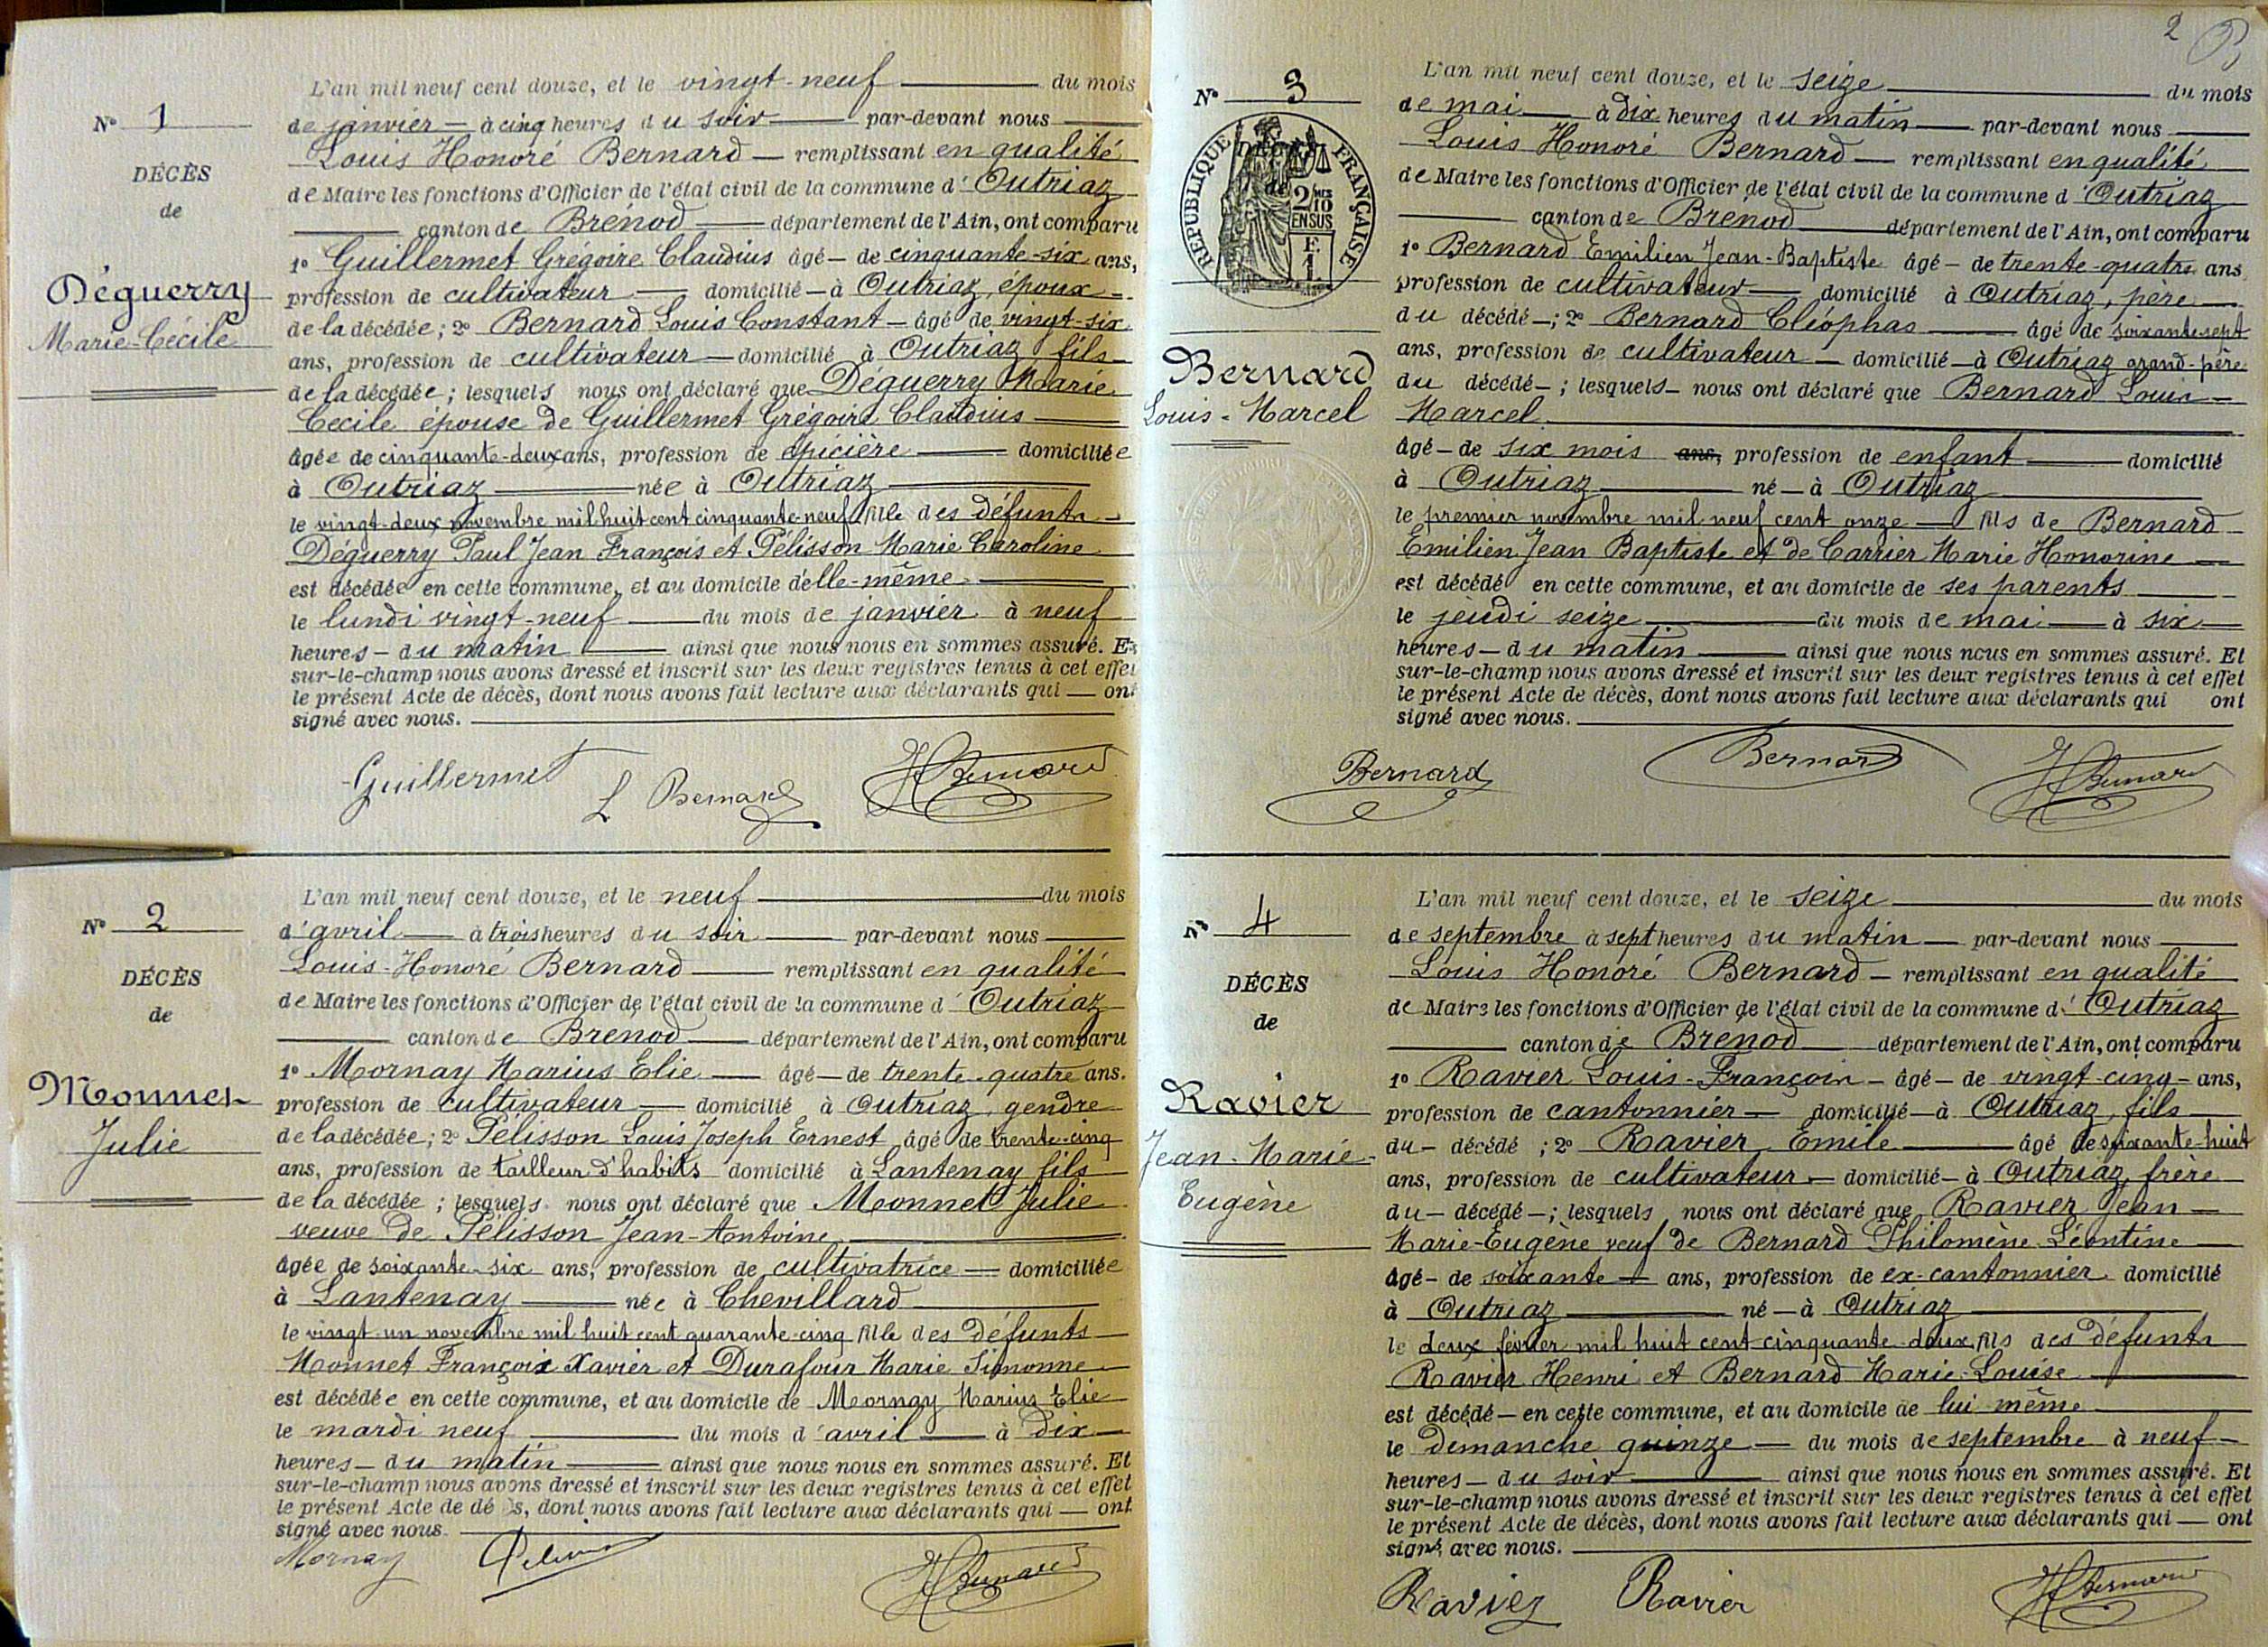 L'an mil neuf cent douze, et le vingt-neuf du mois
N° 1
de janvier à cinq heures du soir par-devant nous
Louis Honoré Bernard remplissant en qualité
DÉCÈS
de Maire les fonctions d'Officier de l'état civil de la commune d'Outriaz
de
canton de Brénod département de l'Ain, ont comparu
1° Guillermet Grégoire Claudius âgé de cinquante-six ans,
Déguerry
profession de cultivateur domicilié à Outriaz, époux
de la décédée; 2° Bernard Louis Constant âgé de vingt-six
Marie-Cécile
ans, profession de cultivateur domicilié à Outriaz fils
de la décédée; lesquels nous ont déclaré que Déguerry Marie
Cécile épouse de Guillermet Grégoire Claudius
âgée de cinquante-deux ans, profession de épicière domiciliée
à Outriaz née à Outriaz
le vingt-deux novembre mil huit cent cinquante-neuf fille des défunts
Déguerry Paul Jean François et Pélisson Marie Caroline
est décédée en cette commune, et au domicile d'elle-même
le lundi vingt-neuf du mois de janvier à neuf
heures du matin ainsi que nous nous en sommes assuré. Et
sur-le-champ nous avons dressé et inscrit sur les deux registres tenus à cet effet
le présent Acte de décès, dont nous avons fait lecture aux déclarants qui ont
signé avec nous.
Guillermet L Bernard H Bernard
L'an mil neuf cent douze, et le neuf du mois
N° 2
d'avril à trois heures du soir par-devant nous
Louis-Honoré Bernard remplissant en qualité
DÉCÈS
de Maire les fonctions d'Officier de l'état civil de la commune d'Outriaz
de
canton de Brénod département de l'Ain, ont comparu
1° Mornay Marius Elie âgé de trente-quatre ans.
Monnet
profession de cultivateur domicilié à Outriaz, gendre
Julie
de la décédée; 2° Pélisson Louis Joseph Ernest âgé de trente-cinq
ans, profession de tailleur d'habits domicilié à Lantenay fils
de la décédée; lesquels nous ont déclaré que Monnet Julie
veuve de Pélisson Jean-Antoine
âgée de soixante-six ans, profession de cultivatrice domiciliée
à Lantenay née à Chevillard
le vingt-un novembre mil huit cent quarante-cinq fille des défunts
Monnet François Xavier et Durafour Marie Simonne
est décédée en cette commune, et au domicile de Mornay Marius Elie
le mardi neuf du mois d'avril à dix
heures du matin ainsi que nous nous en sommes assuré. Et
sur-le-champ nous avons dressé et inscrit sur les deux registres tenus à cet effet
le présent Acte de dé s, dont nous avons fait lecture aux déclarants qui ont
signé avec nous.
Mornay H Bernard
2
L'an mil neuf cent douze, et le seize du mois
N° 3
de mai à dix heures du matin par-devant nous
Louis Honoré Bernard remplissant en qualité
RÉPUBLIQUE FRANÇAISE
2/10
EN SUS
de Maire les fonctions d'Officier de l'état civil de la commune d'Outriaz
canton de Brénod département de l'Ain, ont comparu
1° Bernard Emilien Jean-Baptiste âgé de trente-quatre ans
profession de cultivateur domicilié à Outriaz, père
du décédé; 2° Bernard Cléophas âgé de soixante-sept
Bernard
ans, profession de cultivateur domicilié à Outriaz grand-père
Louis-Marcel
du décédé; lesquels nous ont déclaré que Bernard Louis
Marcel
âgé de six mois ans, profession de enfant domicilié
à Outriaz né à Outriaz
le premier novembre mil neuf cent onze fils de Bernard
Emilien Jean Baptiste et de Carrier Marie Honorine
est décédé en cette commune, et au domicile de ses parents
le jeudi seize du mois de mai à six
heures du matin ainsi que nous nous en sommes assuré. Et
sur-le-champ nous avons dressé et inscrit sur les deux registres tenus à cet effet
le présent Acte de décès, dont nous avons fait lecture aux déclarants qui ont
signé avec nous.
Bernard Bernard H Bernard
L'an mil neuf cent douze, et le seize du mois
N° 4
de septembre à sept heures du matin par-devant nous
Louis Honoré Bernard remplissant en qualité
DÉCÈS
de Maire les fonctions d'Officier de l'état civil de la commune d'Outriaz
de
canton de Brénod département de l'Ain, ont comparu
1° Ravier Louis-François âgé de vingt-cinq ans,
Ravier
profession de cantonnier domicilié à Outriaz, fils
Jean-Marie-
du décédé; 2° Ravier Emile âgé de soixante-huit
ans, profession de cultivateur domicilié à Outriaz, frère
Eugène
du décédé; lesquels nous ont déclaré que Ravier Jean
Marie-Eugène veuf de Bernard Philomène Léontine
âgé de soixante ans, profession de ex-cantonnier domicilié
à Outriaz né à Outriaz
le deux février mil huit cent cinquante-deux fils des défunts
Ravier Henri et Bernard Marie-Louise
est décédé en cette commune, et au domicile de lui même
le dimanche quinze du mois de septembre à neuf
heures du soir ainsi que nous nous en sommes assuré. Et
sur-le-champ nous avons dressé et inscrit sur les deux registres tenus à cet effet
le présent Acte de décès, dont nous avons fait lecture aux déclarants qui ont
signé avec nous.
Ravier Ravier H Bernard